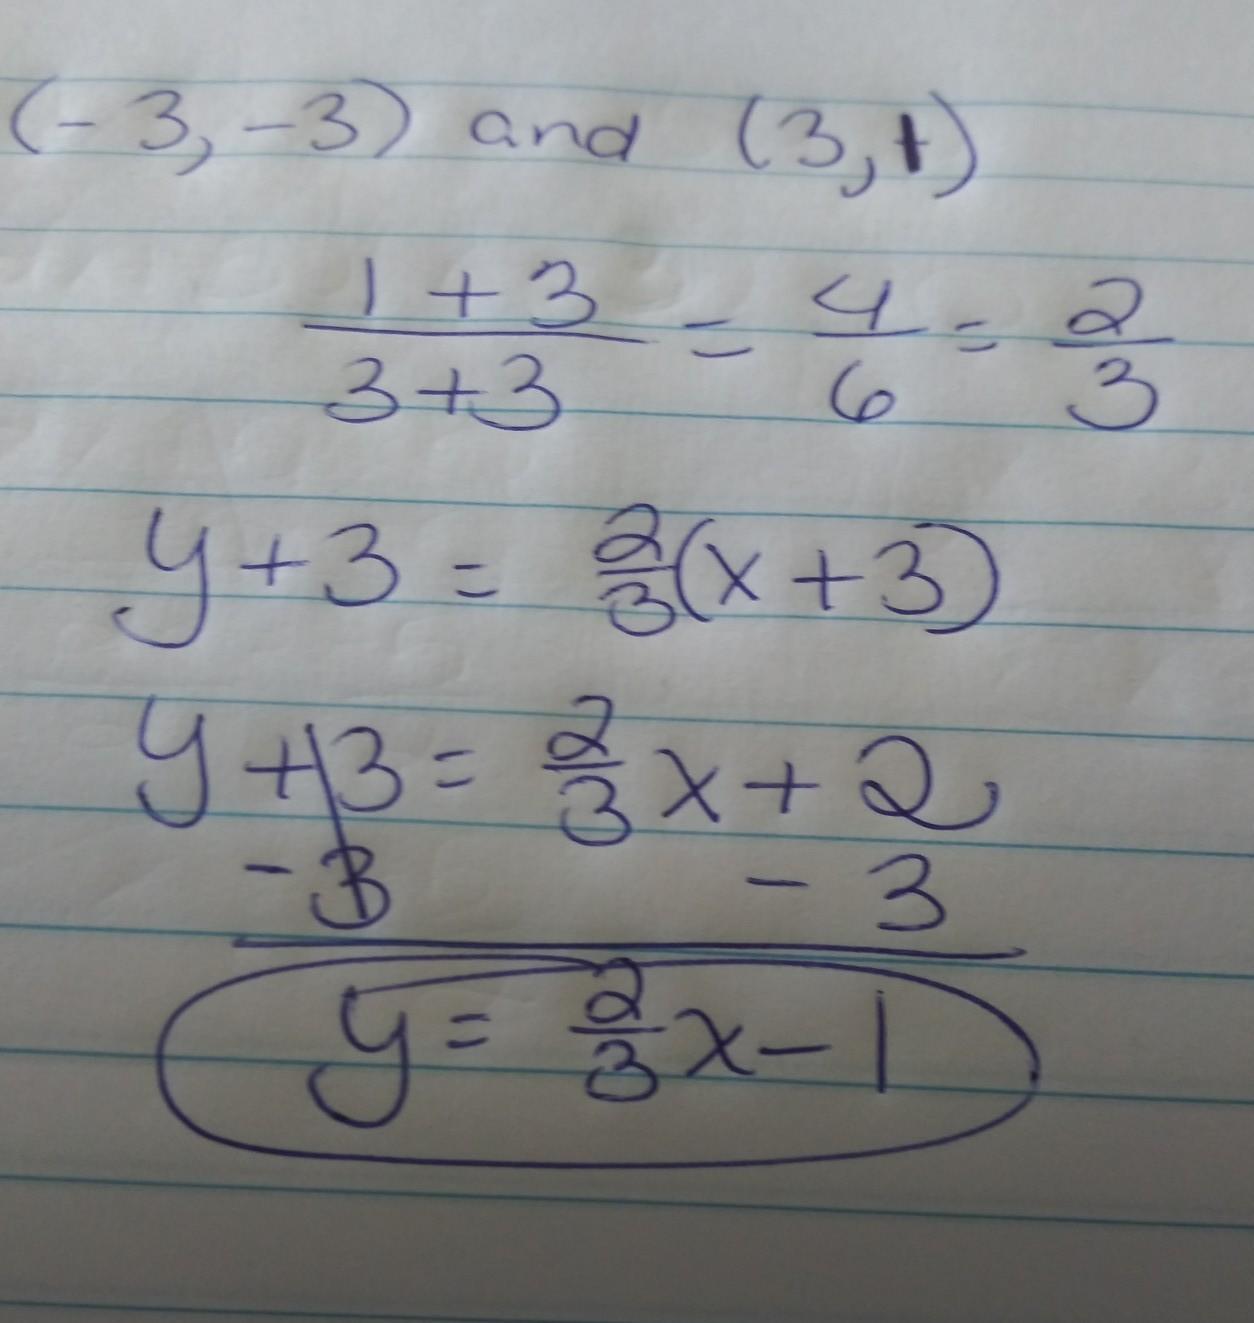 (-3,-3) and (3,1)
1+3/3+3 = 4/6 = 2/3
y+3 = 2/3(x+3)
y+3 = 2/3x+2
-3 -3
y = 2/3x-1